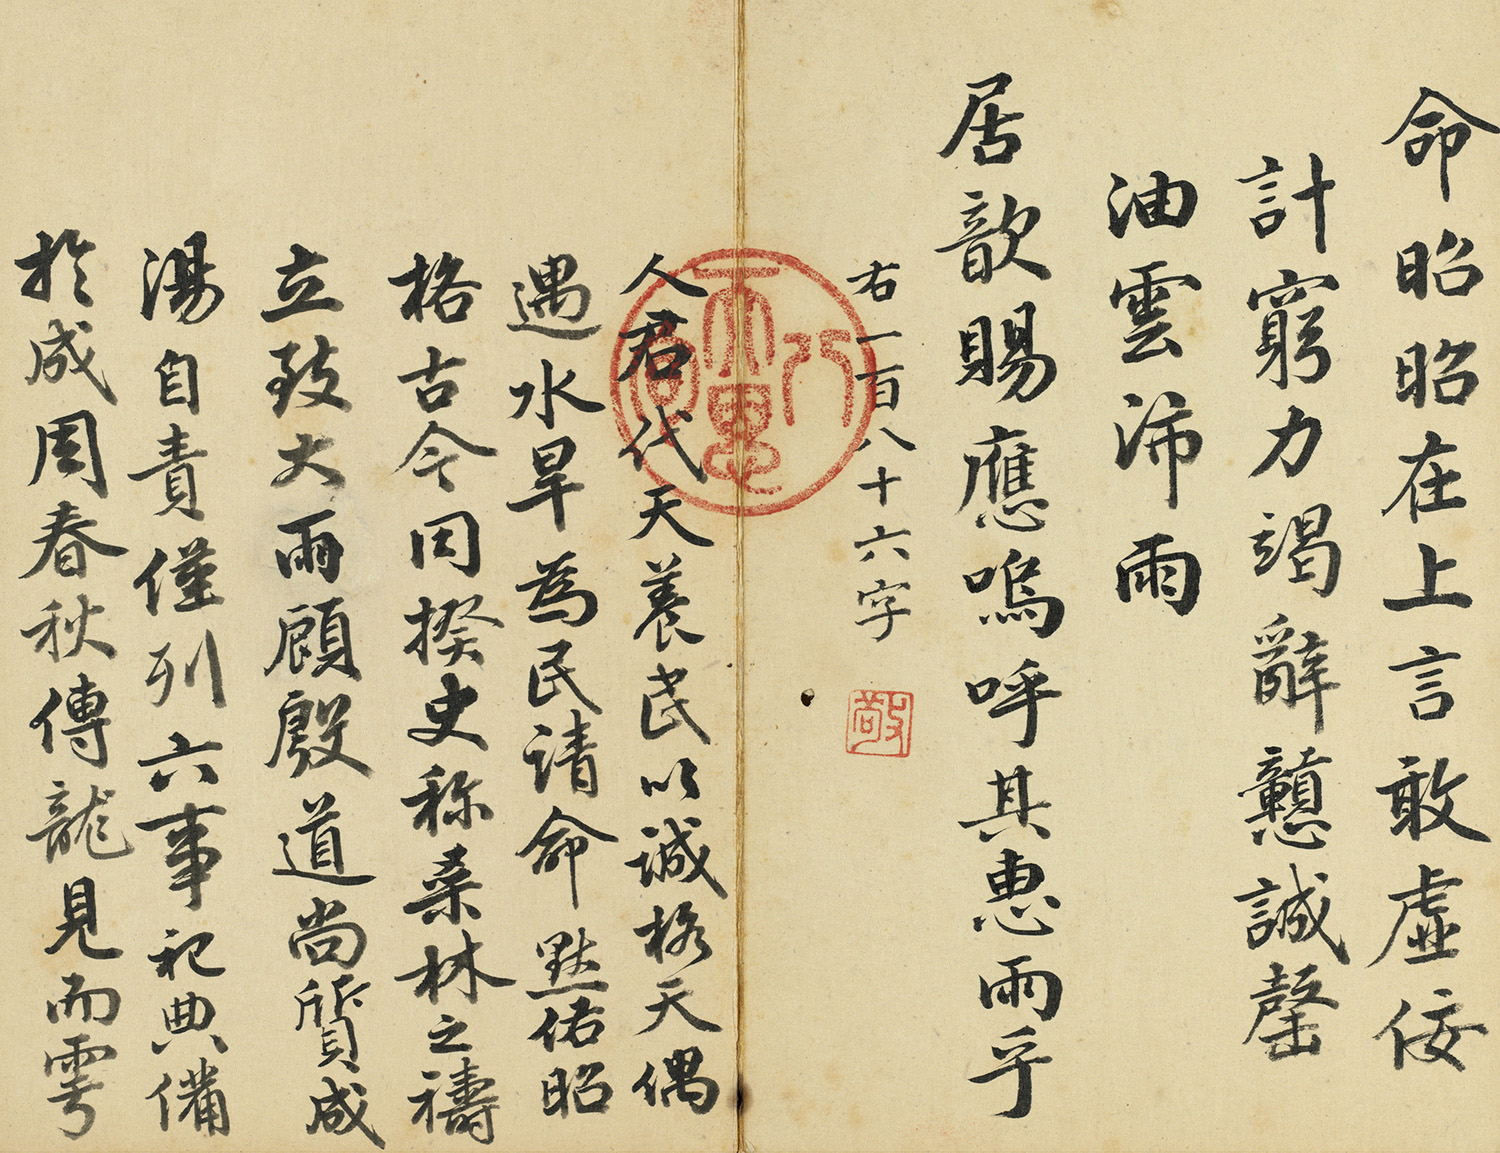 命昭昭在上言敢虛佞
計窮力竭辭戇誠罄
油雲沛雨
居歆賜應嗚呼其惠雨乎
右一百八十六字
敬
人君代天養民以誠格天偶
遇水旱為民請命默佑昭
格古今因揆史称桑林之禱
立致大雨顧殷道尚質成
湯自責僅列六事祀典備
於成周春秋傳龍見而雩